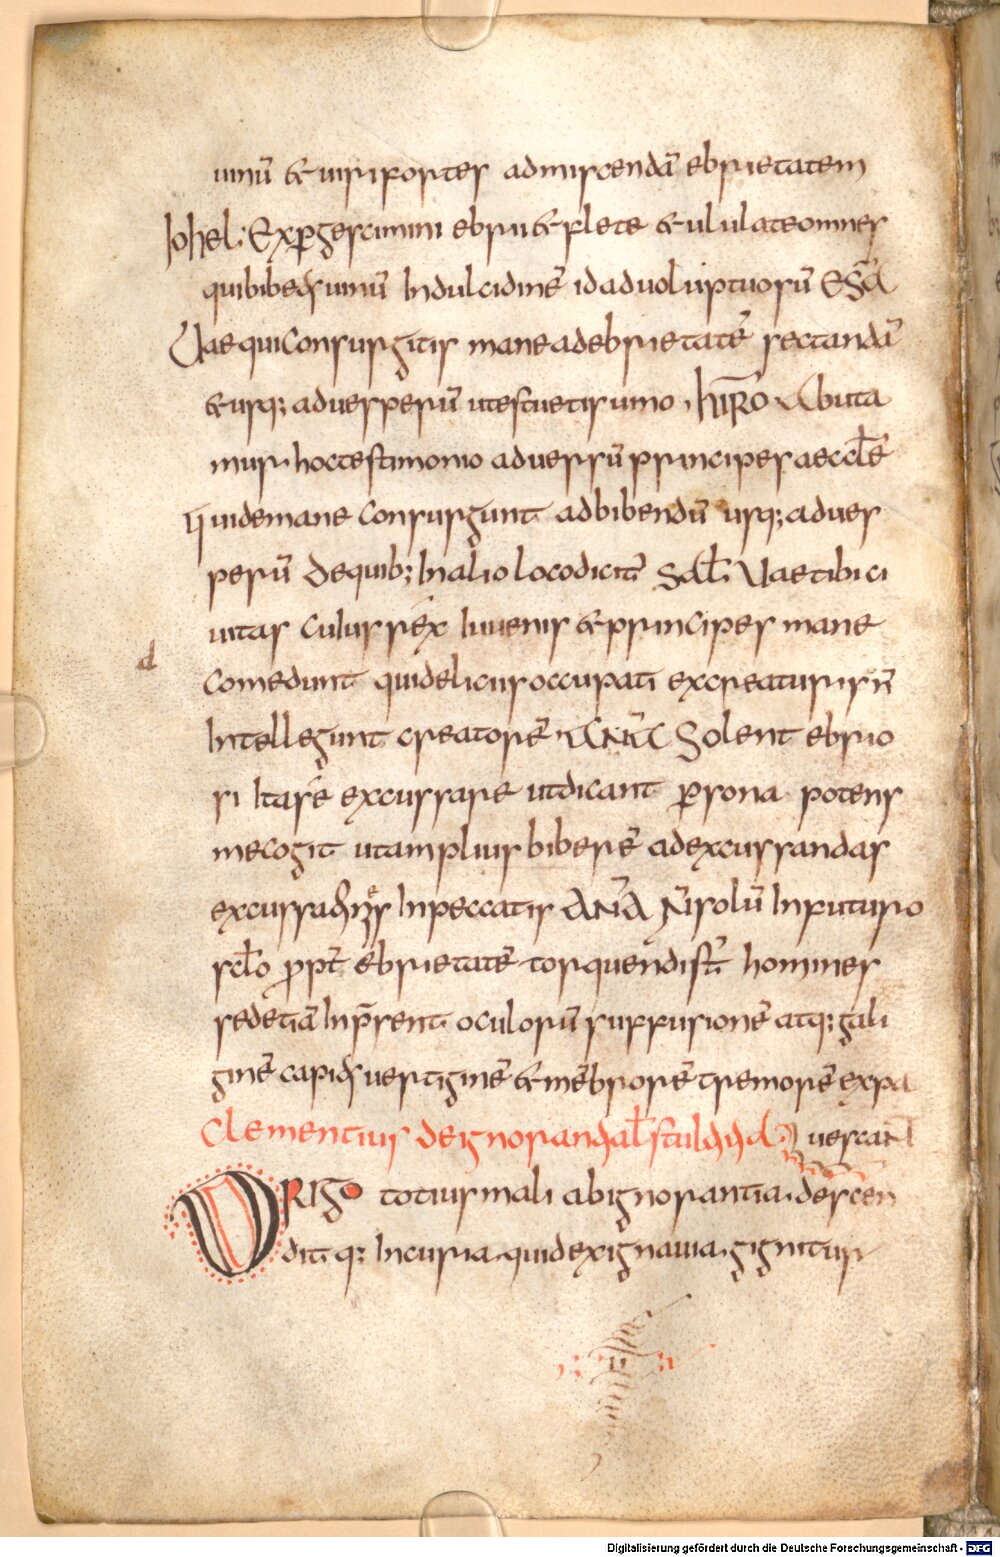 uinū & uiri fortes admiscendā ebrietatem
Johel; Expgescimini ebrii & flete & ululate omnes
qui bibetis uinū In dulcidinē id ad uoluptuosū ESĀ
Uae qui Consurgitis mane ad ebrietatē sectandā
& usq; ad uesperū ut estuetis uino, hIRō Abuta
mur hoc testimonio aduersū principes aeccłe
qui de mane Consurgunt ad bibendū usq; ad ues
perū De quib; In alio loco dicit̄ Sał. Uae tibi ci
uitas Cuius rex Iuuenis & principes mane
d
Comedunt qui delicius occupati ex creaturis n̄
Intellegunt creatorē, ANA Solent ebrio
si Ita se excussare ut dicant psona potens
me cogit ut amplius biberē ad excussandas
In peccatis ANA N̄ solū In futuro
scło ppt ebrietatē torquendi st̄ homines
sed etiā In psenti oculorū suffusionē atq; gali
ginē capitis uertiginē & mēbrorē tremorē expa
Clementius de ignorantia
uescan
ORIGO totius mali ab ignorantia. descen
dit q; Incuria. quid ex ignauia. gignitur